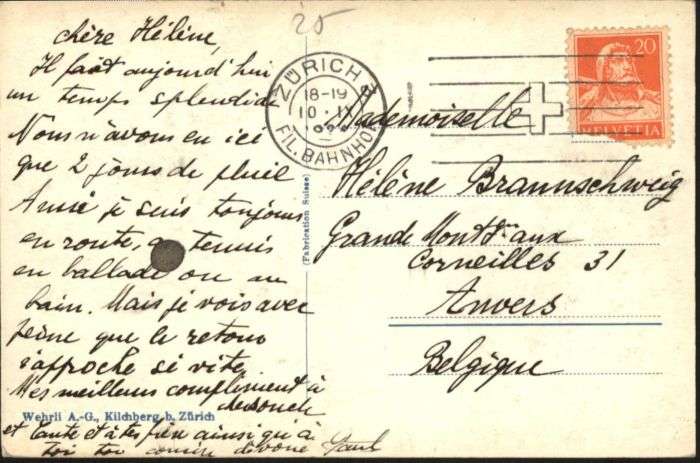 25
chère Hélène,
Il fait aujourd'hui
un temps splendide
Nous n'avons eu ici
que 2 jours de pluie
Aussi je suis toujours
en route, au tennis
en ballade ou au
bain. Mais je vois avec
peine que le retour
s'approche si vite
Mes meilleurs compliment à
et tante et à tes frères ainsi qu'à
toi ton cousin dévoué Paul
Wehrli A.-G., Kilchberg b. Zürich
(Fabrication Suisse)
ZÜRICH 2
18-19
10. IX
FIL. BAHNHOF
20
HELVETIA
Mademoiselle
Hélène Braunschweig
Grande Mont. aux
Corneilles 31
Anvers
Belgique